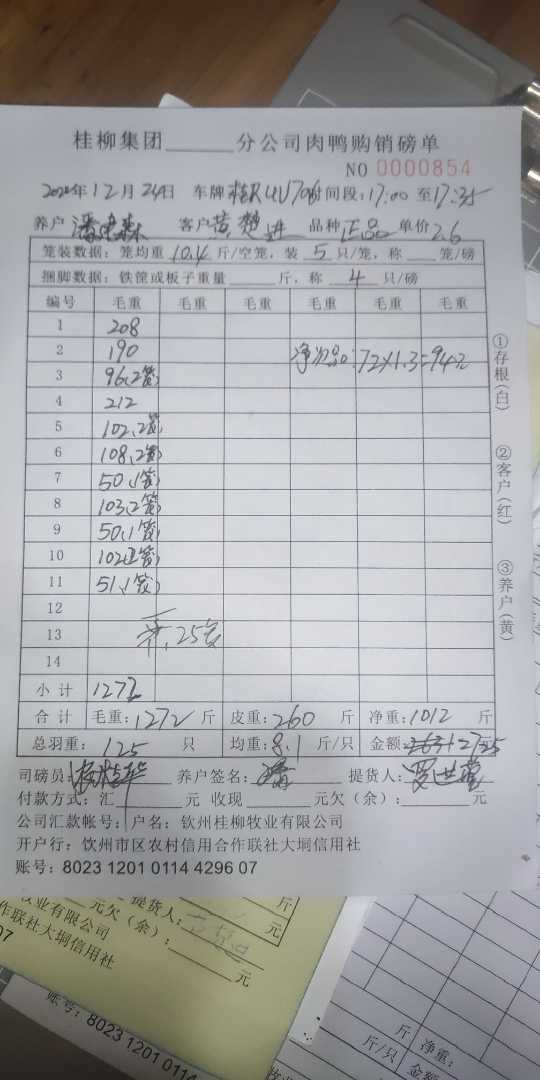 桂柳集团______分公司肉鸭购销磅单
NO 0000854
2020年12月24日 车牌 时间段:17:00 至17:35
养户 客户黄楚进 品种正品 单价2.6
笼装数据: 笼均重 10.4 斤/空笼, 装 5 只/笼, 称____笼/磅
捆脚数据: 铁筐或板子重量______斤, 称 4 只/磅
编号 毛重 毛重 毛重 毛重 毛重 毛重
1 208
2 190 净次品:72×1.3=94元
3 96、2笼
4 212
5 102、2笼
6 108、2笼
7 50、1笼
8 103、2笼
9 50、1笼
10 102、2笼
11 51、1笼
12
13 共、25笼
14
小计 1272
合计 毛重:1272斤 皮重:260斤 净重:1012斤
总羽重: 125 只 均重:8.1斤/只 金额: 2725
司磅员: 养户签名:潘 提货人:
付款方式: 汇______元 收现______元欠(余):______元
公司汇款帐号: 户名: 钦州桂柳牧业有限公司
开户行: 钦州市区农村信用合作联社大垌信用社
账号: 8023 1201 0114 4296 07
①存根(白)
②客户(红)
③养户(黄)
业有限公司
作联社大垌信用社
07
元欠(余):
提货人:
斤
元
账号: 8023 1201 0114
斤
斤/只
净重:
金额